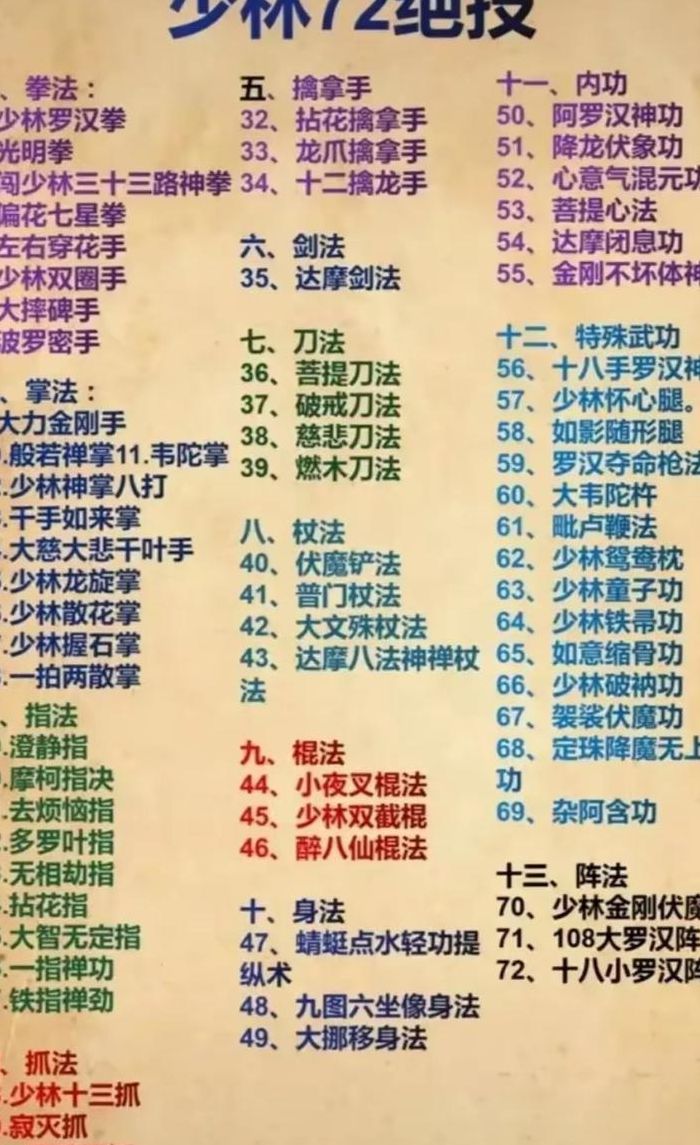 少林72绝技
、拳法：
少林罗汉拳
光明拳
闯少林三十三路神拳
偏花七星拳
左右穿花手
少林双圈手
大摔碑手
波罗密手
、掌法：
大力金刚手
.般若禅掌11.韦陀掌
.少林神掌八打
.千手如来掌
.大慈大悲千叶手
.少林龙旋掌
.少林散花掌
.少林握石掌
.一拍两散掌
、指法
.澄静指
.摩柯指决
.去烦恼指
.多罗叶指
.无相劫指
.拈花指
.大智无定指
.一指禅功
.铁指禅劲
、抓法
.少林十三抓
.寂灭抓
五、擒拿手
32、拈花擒拿手
33、龙爪擒拿手
34、十二擒龙手
六、剑法
35、达摩剑法
七、刀法
36、菩提刀法
37、破戒刀法
38、慈悲刀法
39、燃木刀法
八、杖法
40、伏魔铲法
41、普门杖法
42、大文殊杖法
43、达摩八法神禅杖
法
九、棍法
44、小夜叉棍法
45、少林双截棍
46、醉八仙棍法
十、身法
47、蜻蜓点水轻功提
纵术
48、九图六坐像身法
49、大挪移身法
十一、内功
50、阿罗汉神功
51、降龙伏象功
52、心意气混元功
53、菩提心法
54、达摩闭息功
55、金刚不坏体神
十二、特殊武功
56、十八手罗汉神
57、少林怀心腿。
58、如影随形腿
59、罗汉夺命枪法
60、大韦陀杵
61、毗卢鞭法
62、少林鸳鸯枕
63、少林童子功
64、少林铁帚功
65、如意缩骨功
66、少林破衲功
67、袈裟伏魔功
68、定珠降魔无上
功
69、杂阿含功
十三、阵法
70、少林金刚伏魔
71、108大罗汉阵
72、十八小罗汉阵